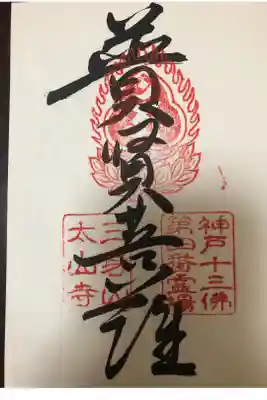 神戸十三佛
第四番霊場
普賢菩薩
三身山
太山寺